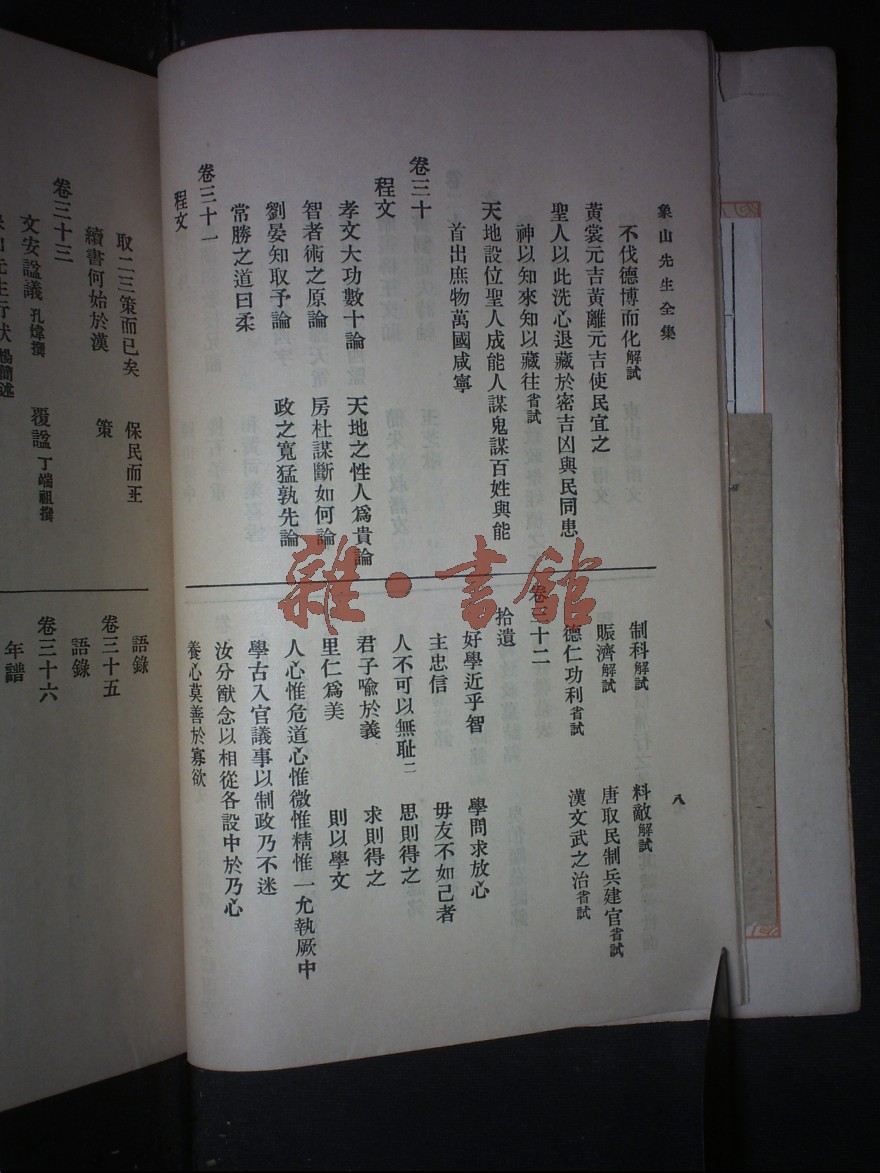 象山先生全集
八
不伐德博而化解試
黃裳元吉黃離元吉使民宜之
聖人以此洗心退藏於密吉凶與民同患
神以知來知以藏往省試
天地設位聖人成能人謀鬼謀百姓與能
首出庶物萬國咸寧
卷三十
程文
孝文大功數十論 天地之性人爲貴論
智者術之原論 房杜謀斷如何論
劉晏知取予論 政之寬猛孰先論
常勝之道曰柔
卷三十一
程文
制科解試 料敵解試
賑濟解試 唐取民制兵建官省試
德仁功利省試 漢文武之治省試
卷三十二
拾遺
好學近乎智 學問求放心
主忠信 毋友不如己者
人不可以無恥二 思則得之
君子喩於義 求則得之
里仁爲美 則以學文
人心惟危道心惟微惟精惟一允執厥中
學古入官議事以制政乃不迷
汝分猷念以相從各設中於乃心
養心莫善於寡欲
取二三策而已矣 保民而王
續書何始於漢 策
卷三十三
文安諡議孔煒撰 覆諡丁端祖撰
先生行狀楊簡述
語錄
卷三十五
語錄
卷三十六
年譜
雜·書館